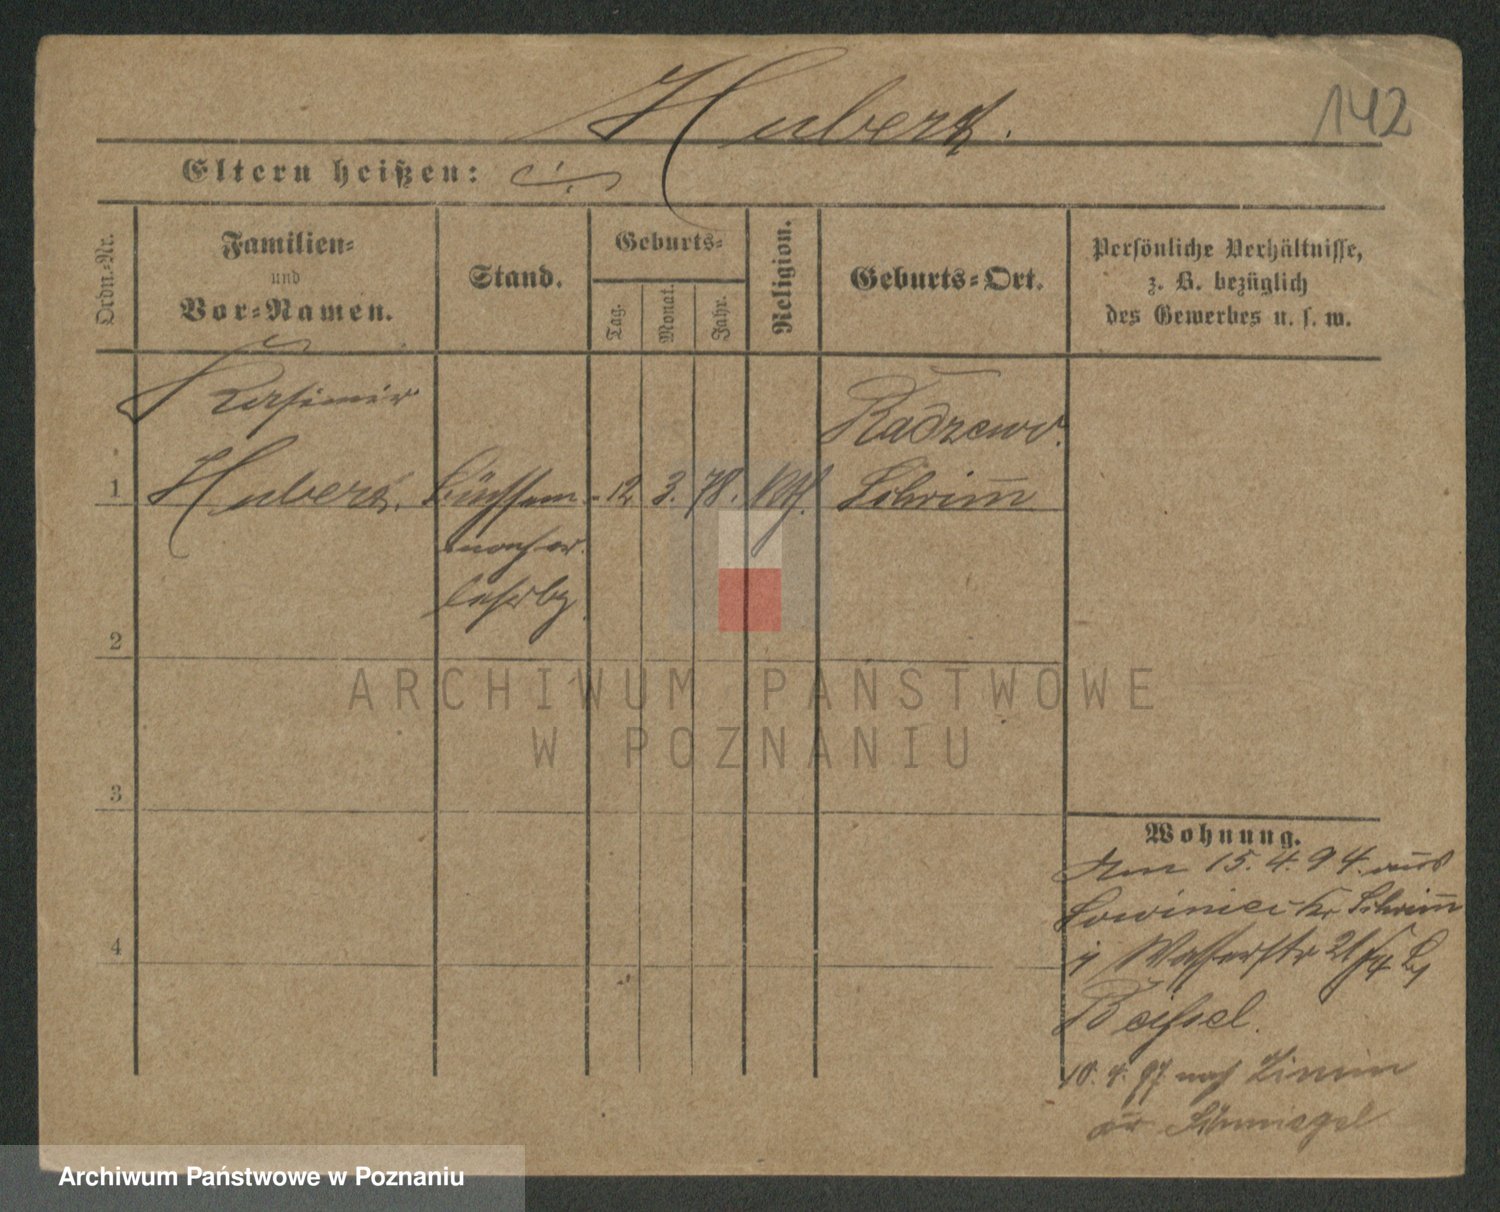 Hubert.
142
Eltern heißen:
Ordn.-Nr.
Familien-
und
Vor-Namen.
Stand.
Geburts-
Tag.
Monat.
Jahr.
Religion.
Geburts-Ort.
Persönliche Verhältnisse,
z. B. bezüglich
des Gewerbes u. s. w.
Kasimir
Radzewo.
1 Hubert. Büchsen- 12. 3. 78. kath. Schrimm
macher
lehrlg.
2
ARCHIWUM PAŃSTWOWE
W POZNANIU
3
Wohnung.
15. 4. 94. aus
Lowiniec Kr Schrimm
Wasserstr
4
10. 4. 97 nach
Schmiegel
Archiwum Państwowe w Poznaniu